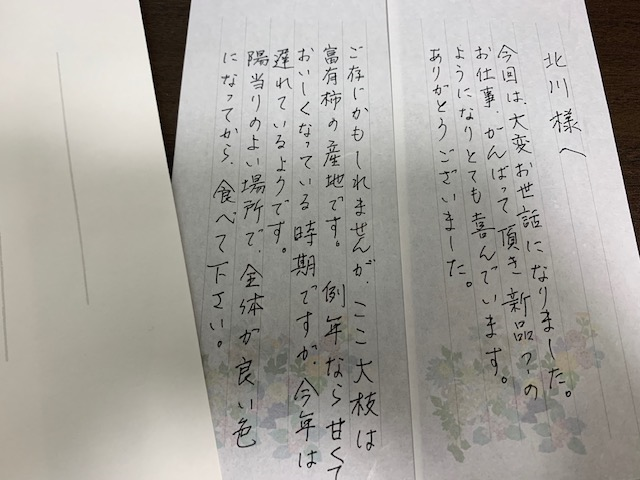 北川様へ
今回は、大変お世話になりました。
お仕事、がんばって頂き新品の
ようになりとても喜んでいます。
ありがとうございました。
ご存じかもしれませんが、ここ大枝は
富有柿の産地です。例年なら甘くて
おいしくなっている時期ですが、今年は
遅れているようです。
陽当りのよい場所で、全体が良い色
になってから、食べて下さい。